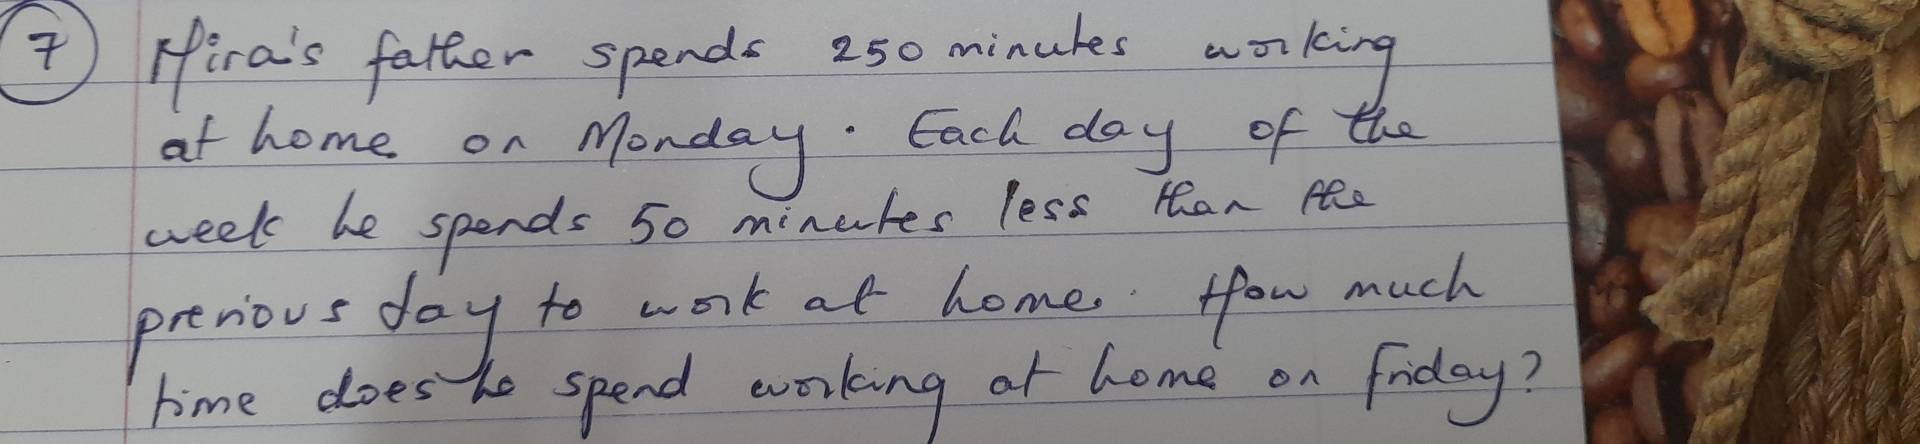 7 Hira's father spends 250 minutes working
at home on Monday. Each day of the
week he spends 50 minutes less than the
previous day to work at home. How much
time does he spend working at home on friday?